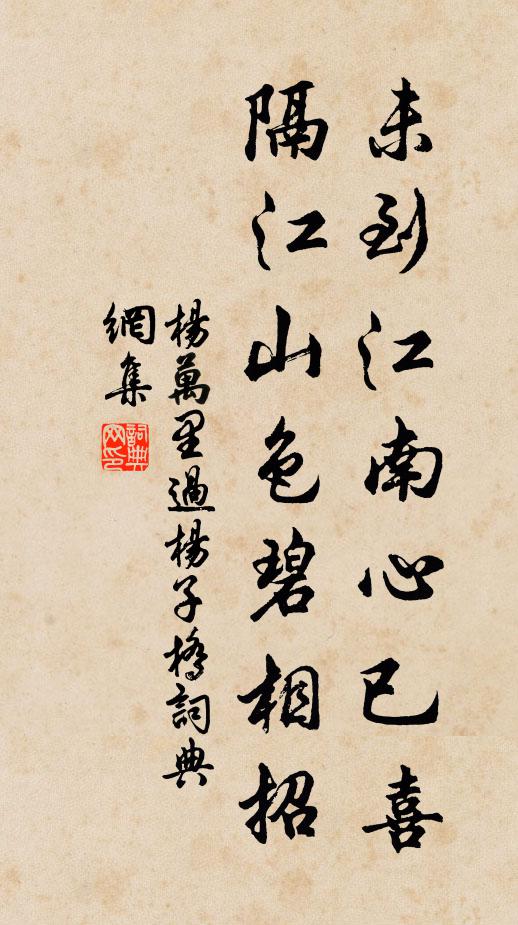 未到江南心已喜
隔江山色碧相招
楊萬里過楊子橋詞典
網集
詞典
網印